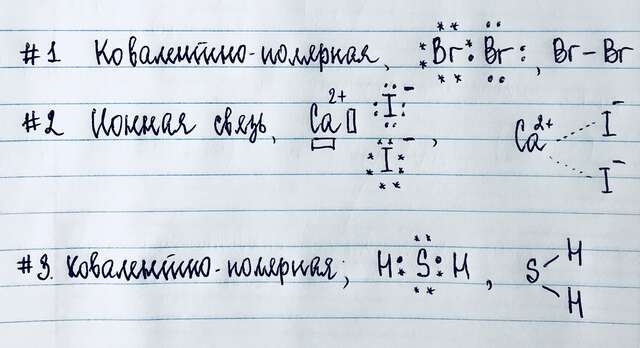 #1 Ковалентно-полярная, Br Br, Br-Br
#2 Ионная связь, Ca²⁺ I⁻ I⁻, Ca²⁺ I⁻ I⁻
#3. Ковалентно-полярная; H:S:H, S H H